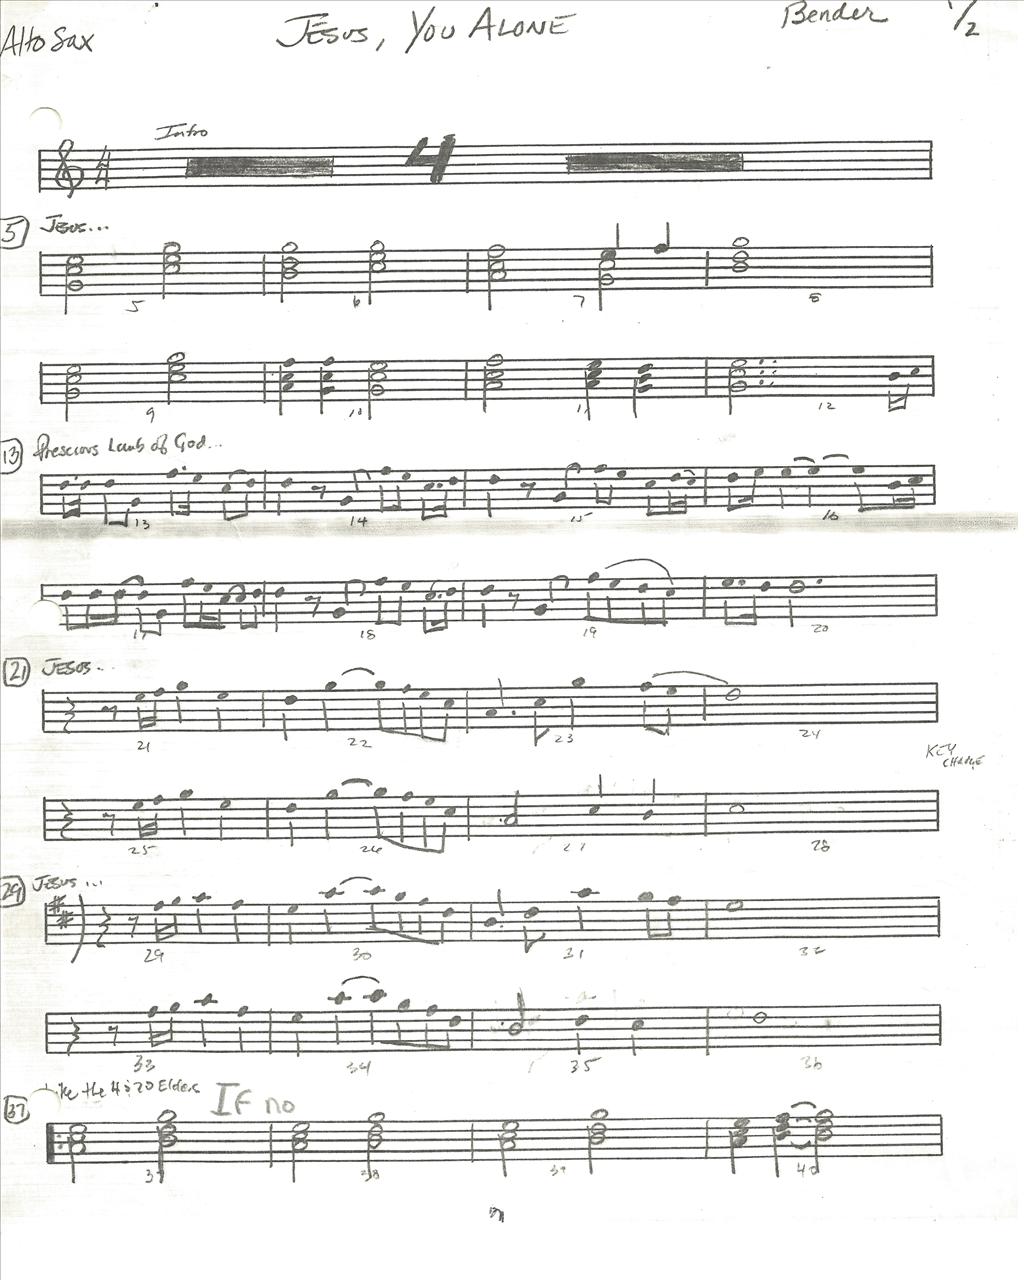 Alto Sax
JESUS, YOU ALONE
Bender
1/2
Intro
4
4
5 JESUS...
5 6 7 8
9 10 11 12
13 Prescious Lamb of God...
13 14 15 16
17 18 19 20
21 JESUS...
21 22 23 24
KEY
CHANGE
25 26 27 28
29 JESUS...
29 30 31 32
33 34 35 36
37 Like the 4 & 20 Elders
IF no
37 38 39 40